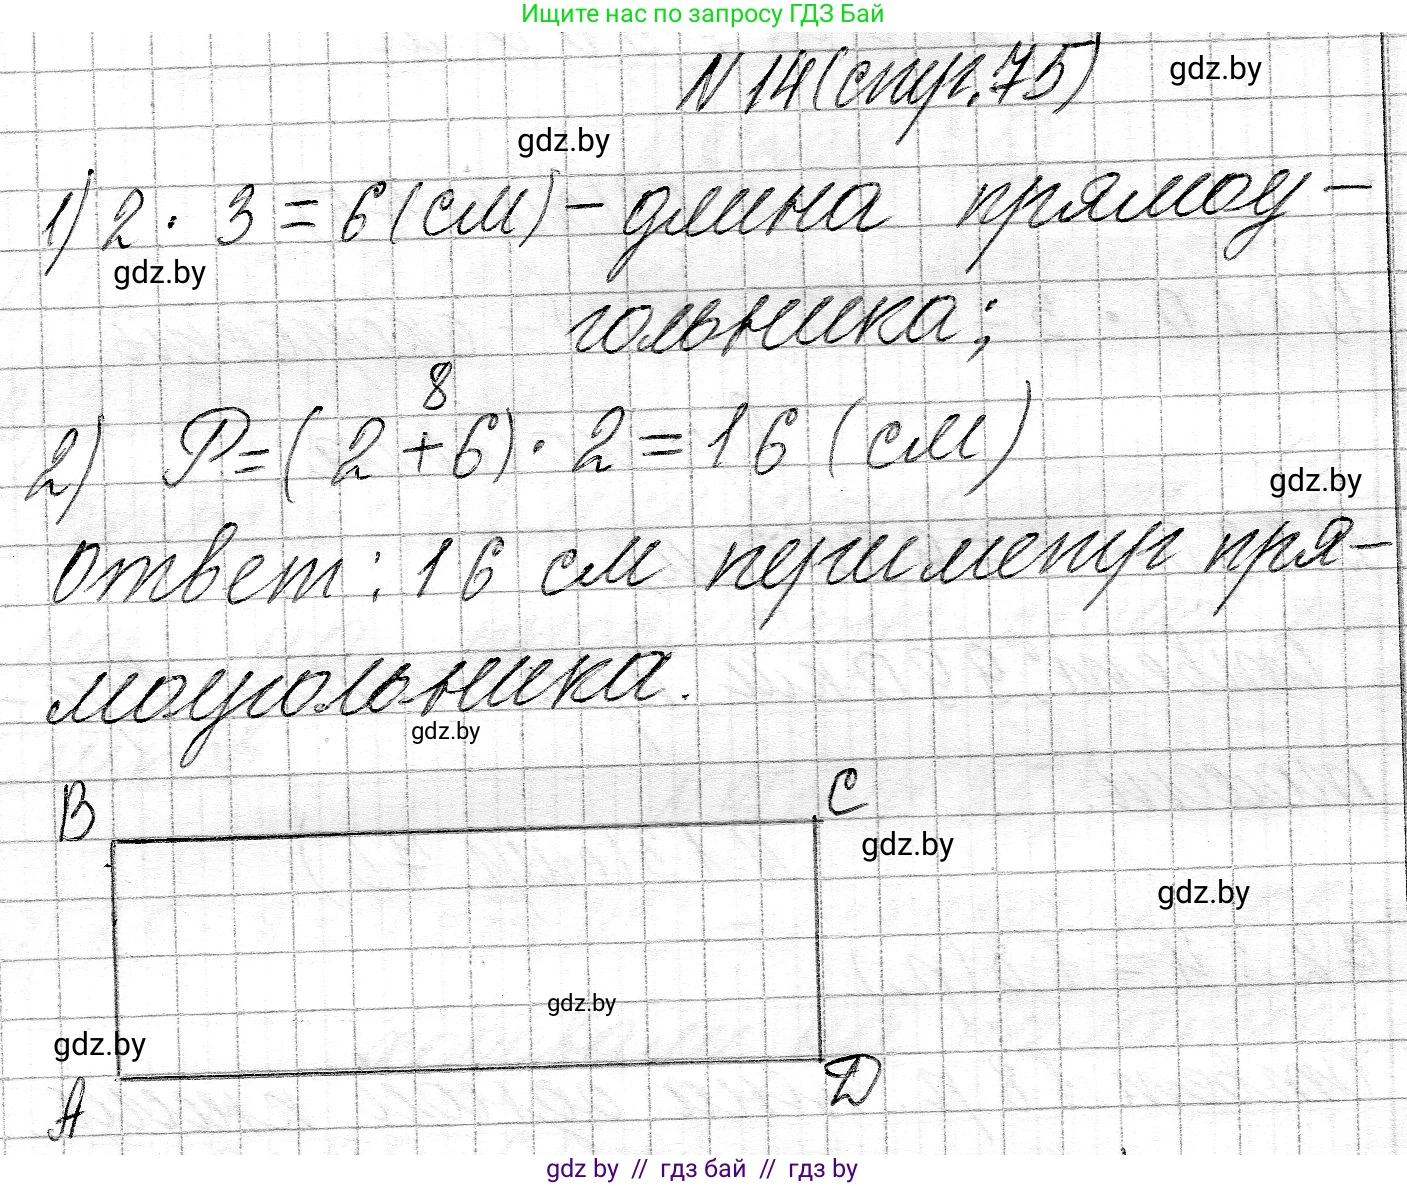 Ищите нас по запросу ГДЗ Бай
N 14 (стр. 75)
gdz.by
gdz.by
1) 2 · 3 = 6 (см) – длина прямоу-
gdz.by
гольника;
8
2) P = (2 + 6) · 2 = 16 (см)
gdz.by
Ответ: 16 см периметр пря-
моугольника.
gdz.by
B
C
gdz.by
gdz.by
gdz.by
gdz.by
A
D
gdz by // гдз бай // гдз by